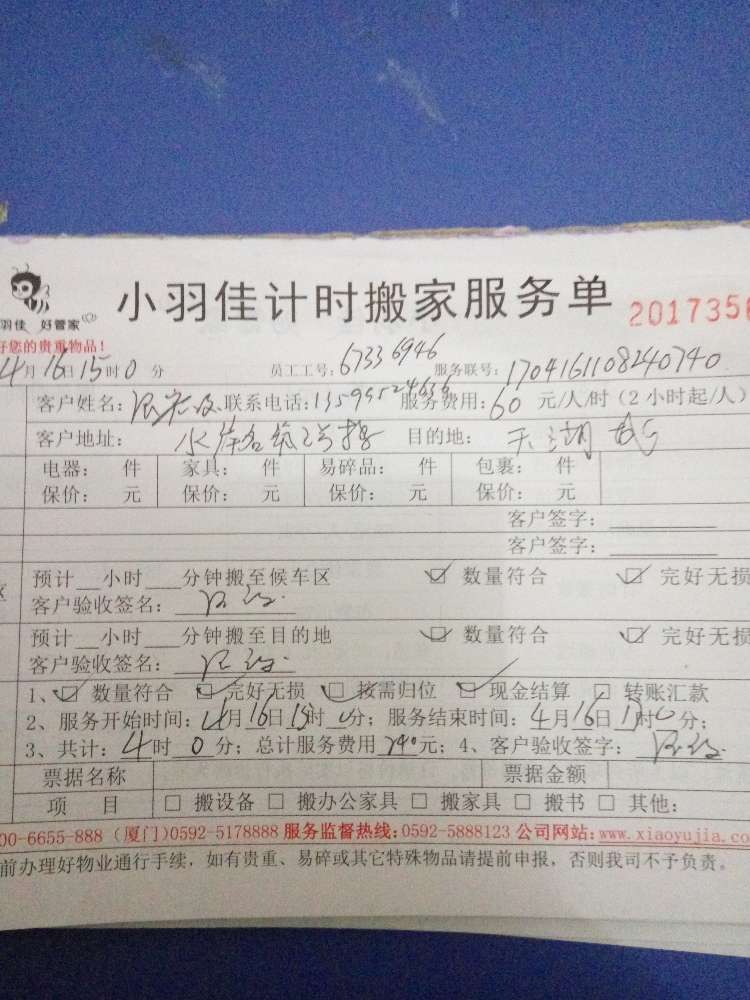 小羽佳计时搬家服务单 2017356
羽佳 好管家
好您的贵重物品!
4月16日15时0分 员工工号:67336946 服务联号:1704161108240740
客户姓名: 联系电话: 服务费用:60元/人/时(2小时起/人)
客户地址: 目的地:天湖城
电器: 件 家具: 件 易碎品: 件 包裹: 件
保价: 元 保价: 元 保价: 元 保价: 元
客户签字:
客户签字:
预计__小时___分钟搬至候车区 ☑ 数量符合 ☑ 完好无损
客户验收签名:
预计__小时___分钟搬至目的地 ☑ 数量符合 ☑ 完好无损
客户验收签名:
1、☑ 数量符合 ☑ 完好无损 ☑ 按需归位 ☑ 现金结算 □ 转账汇款
2、服务开始时间:4月16日15时0分;服务结束时间:4月16日17时0分;
3、共计:4时0分;总计服务费用240元;4、客户验收签字:
票据名称 票据金额
项 目 □ 搬设备 □ 搬办公家具 □ 搬家具 □ 搬书 □ 其他:
00-6655-888 (厦门)0592-5178888 服务监督热线:0592-5888123 公司网站:www.xiaoyujia.com
前办理好物业通行手续,如有贵重、易碎或其它特殊物品请提前申报,否则我司不予负责。